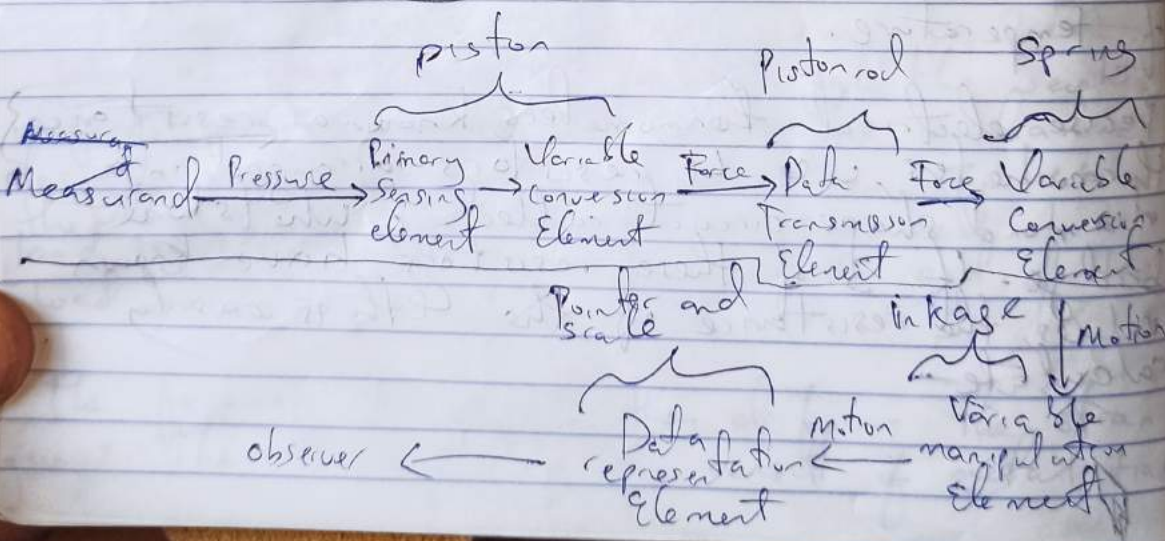 piston
Pistonrod
Spring
Measurand
Pressure
Primary
Sensing
element
Variable
Conversion
Element
Force
Data
Transmission
Element
Force
Variable
Conversion
Element
Pointer and
scale
inkage
Motion
Variable
manipulation
Element
Motion
Data
representation
Element
observer